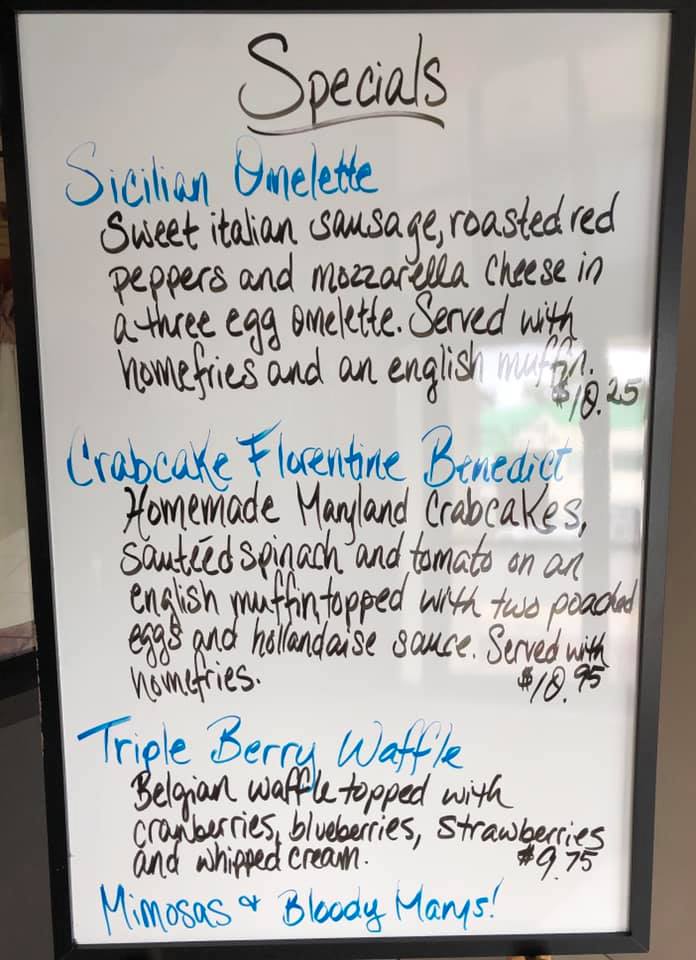 Specials
Sicilian Omelette
Sweet italian sausage, roasted red
peppers and mozzarella cheese in
a three egg omelette. Served with
homefries and an english muffin.
$10.25
Crabcake Florentine Benedict
Homemade Maryland Crabcakes,
sautéed spinach and tomato on an
english muffin, topped with two poached
eggs and hollandaise sauce. Served with
homefries. $10.95
Triple Berry Waffle
Belgian waffle topped with
cranberries, blueberries, strawberries
and whipped cream. $9.75
Mimosas & Bloody Marys!